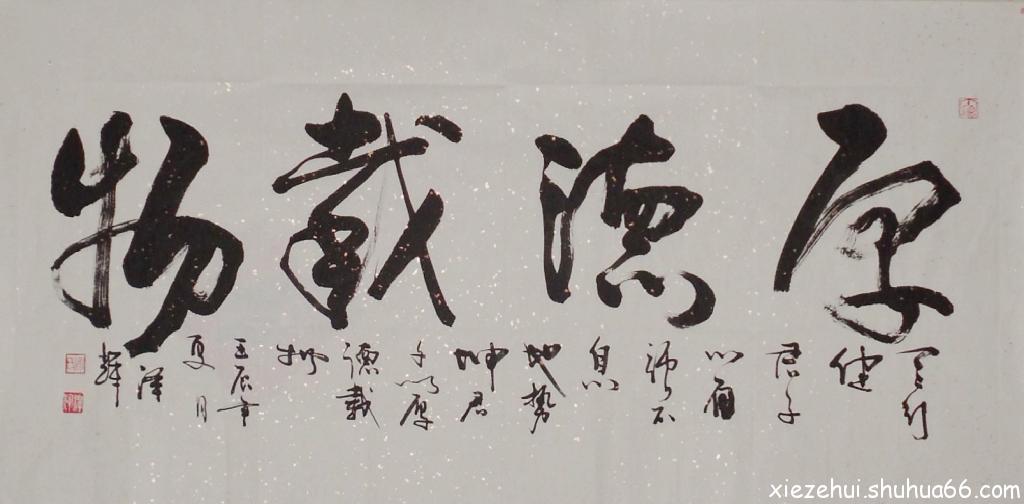 厚德載物
天行
健
君子
以自
强不
息
地势
坤君
子以厚
德載
物
壬辰年
夏月
泽
辉
xiezehui.shuhua66.com